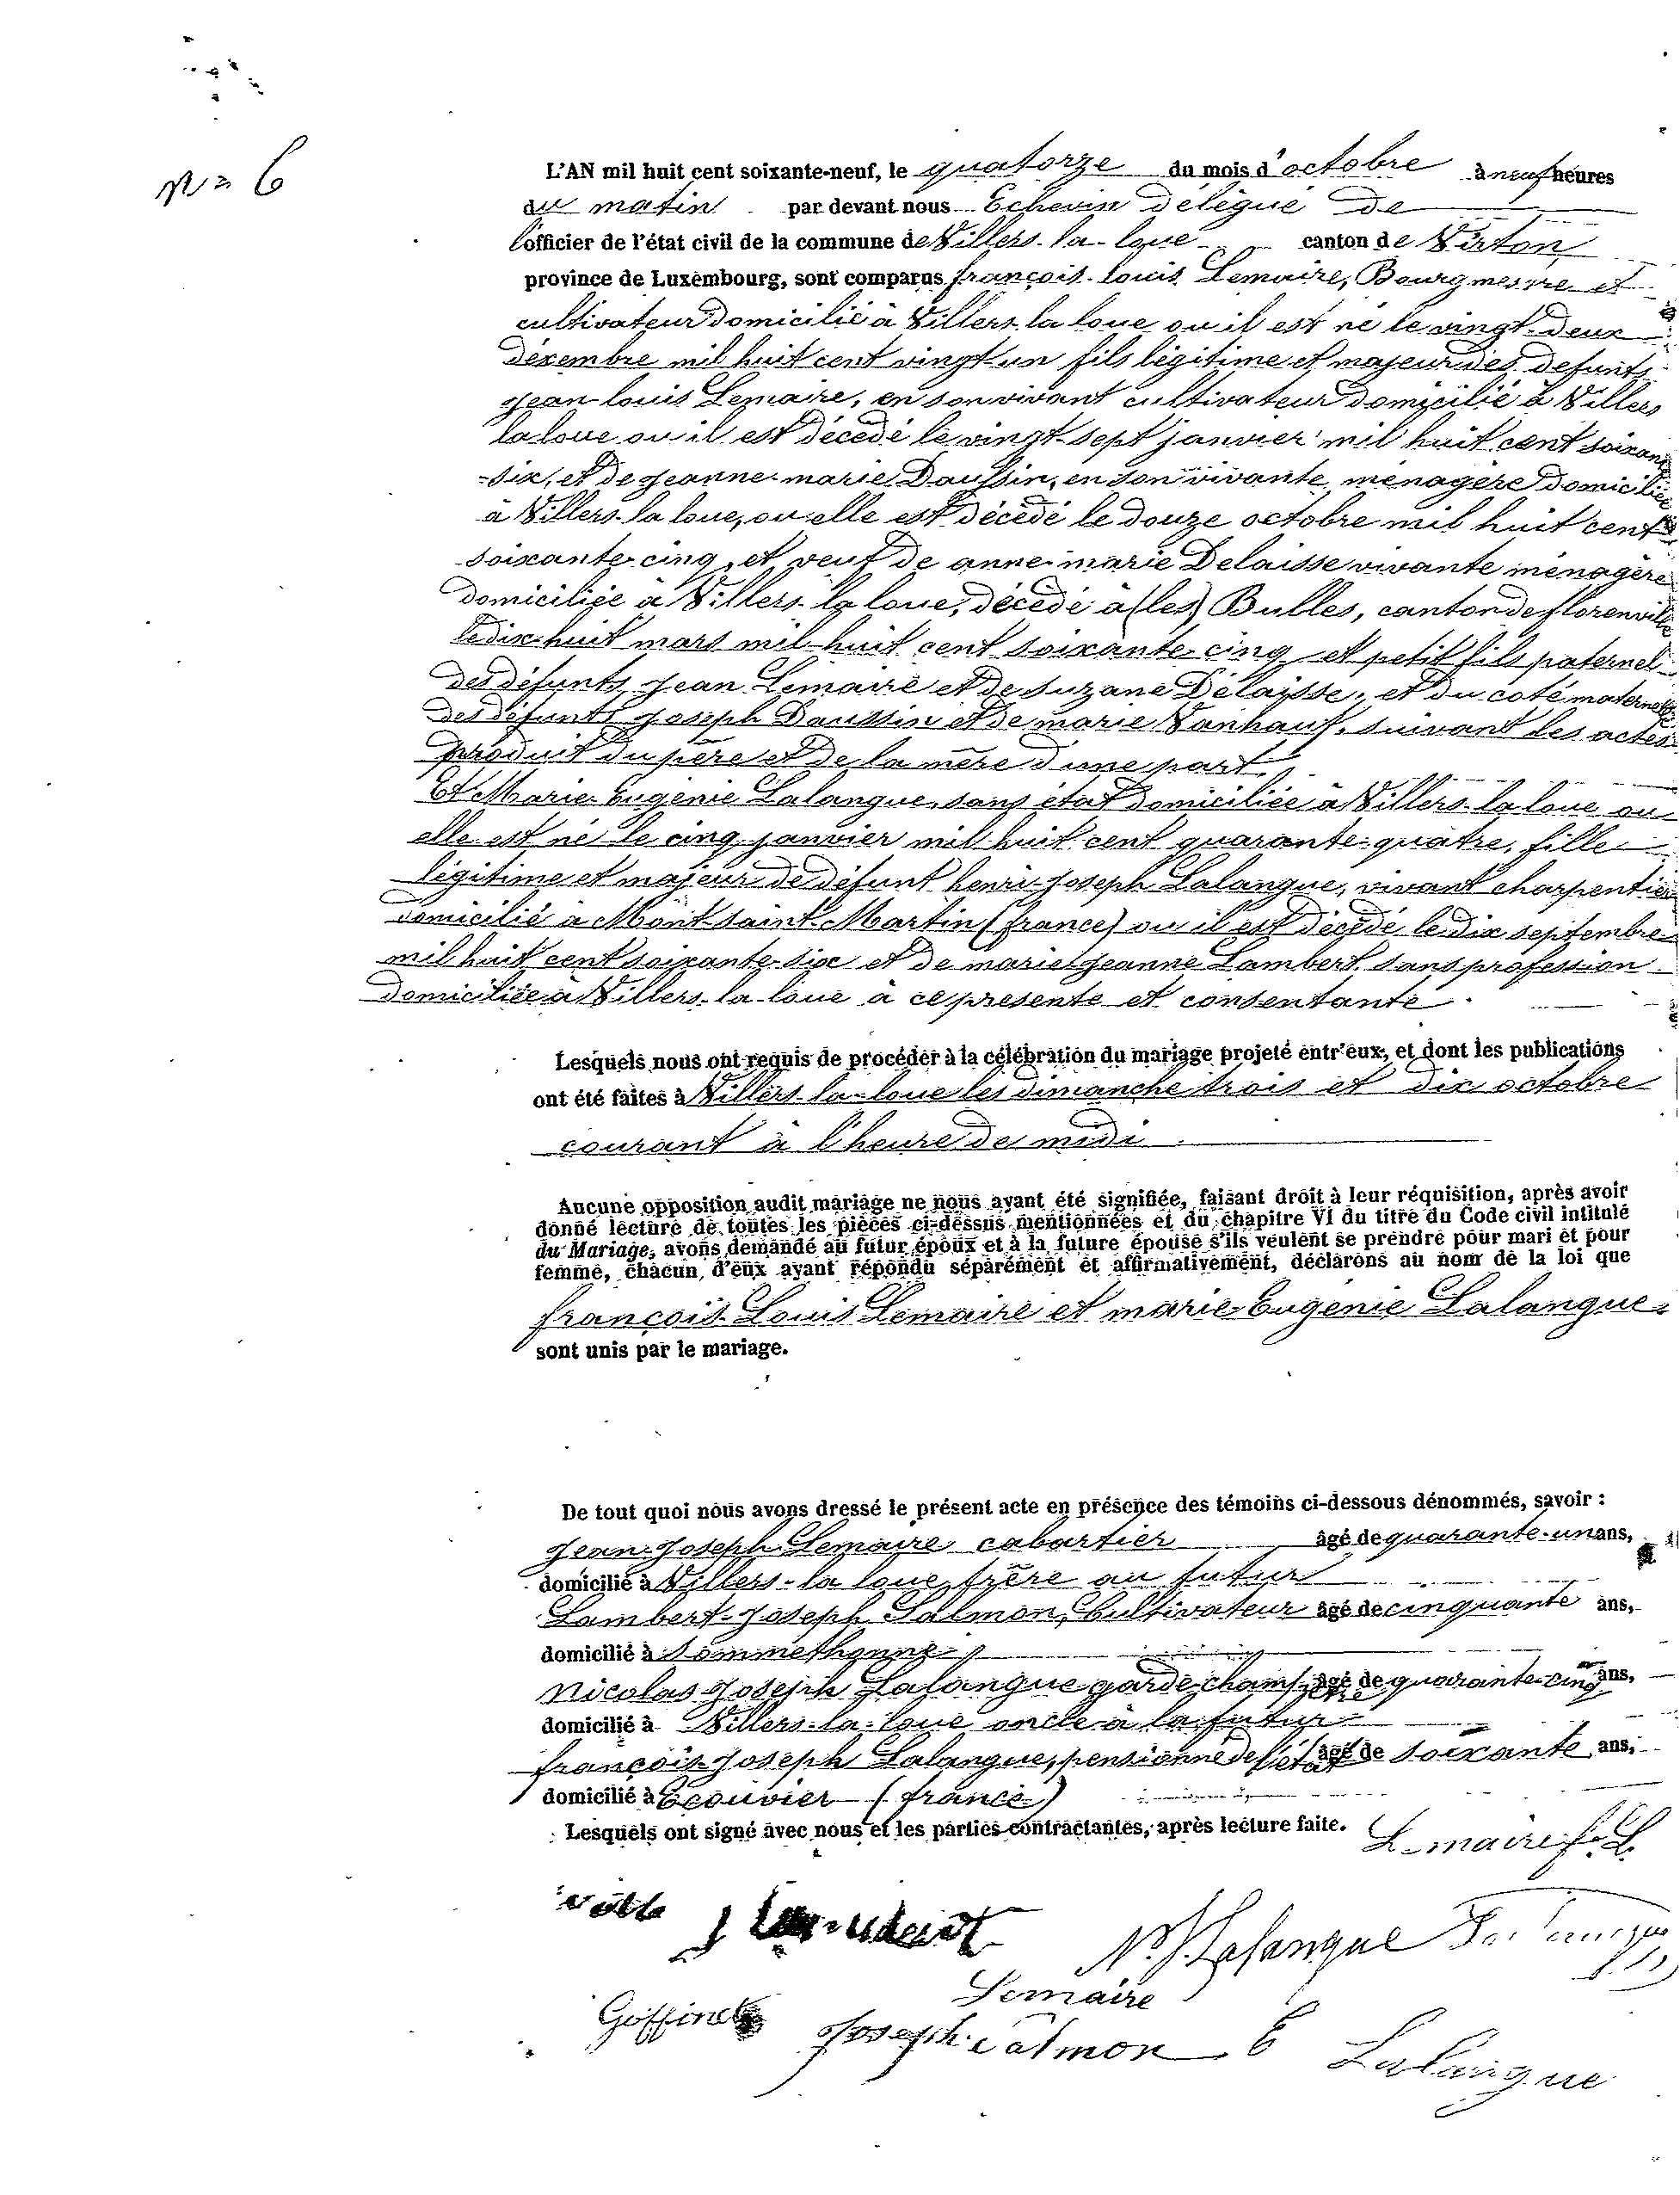 n° 6
L'AN mil huit cent soixante-neuf, le quatorze du mois d'octobre à neuf heures
du matin par devant nous Echevin délégué de
l'officier de l'état civil de la commune de Villers-la-loue canton de Virton
province de Luxembourg, sont comparus françois-louis Lemaire, Bourgmestre et
cultivateur domicilié à Villers-la loue ou il est né le vingt-deux
décembre mil huit cent vingt-un fils légitime et majeur des defunts
Jean-louis Lemaire, en son vivant cultivateur domicilié à Villers
la loue ou il est décédé le vingt-sept janvier mil huit cent soixante
-six, et de Jeanne-marie Daussin, en son vivante, ménagère domiciliée
à Villers-la loue, ou elle est décédé le douze octobre mil huit cent
soixante-cinq, et veuf de anne-marie Delaisse vivante ménagère
domiciliée à Villers-la loue, décédé à (les) Bulles, canton de florenville
le dix-huit mars mil-huit cent soixante-cinq et petit fils paternel
des défunts Jean Lemaire et de Suzane Délaisse, et du coté maternel
des défunts Joseph Daussin et de marie Vanhauf, suivant les actes
produit du père et de la mère d'une part,
Et Marie-Eugénie Lalangue, sans état domiciliée à Villers-la loue ou
elle est né le cinq janvier mil huit cent quarante-quatre, fille
légitime et majeur de défunt henri-Joseph Lalangue, vivant charpentier
domicilié à Mont-saint-Martin (france) ou il est décédé le dix septembre
mil huit cent soixante-six et de marie Jeanne Lambert, sans profession
domiciliée à Villers-la-loue à ce présente et consentante
Lesquels nous ont requis de procéder à la célébration du mariage projeté entr'eux, et dont les publications
ont été faites à Villers-la-loue les dimanche trois et dix octobre
courant à l'heure de midi
Aucune opposition audit mariage ne nous ayant été signifiée, faisant droit à leur réquisition, après avoir
donné lecture de toutes les pièces ci-dessus mentionnées et du chapitre VI du titre du Code civil intitulé
du Mariage, avons demandé au futur époux et à la future épouse s'ils veulent se prendre pour mari et pour
femme, chacun d'eux ayant répondu séparément et affirmativement, déclarons au nom de la loi que
françois-Louis Lemaire et marie-Eugénie Lalangue
sont unis par le mariage.
De tout quoi nous avons dressé le présent acte en présence des témoins ci-dessous dénommés, savoir :
Jean-Joseph Lemaire cabartier âgé de quarante-un ans,
domicilié à Villers-la loue, frère au futur
Lambert-Joseph Salmon, Cultivateur âgé de cinquante ans,
domicilié à Sommethonne
Nicolas Joseph Lalangue garde-champêtre âgé de quarante-cinq ans,
domicilié à Villers-la-loue oncle à la futur
françois-Joseph Lalangue, pensionné de l'état âgé de soixante ans,
domicilié à Ecouvier (france)
Lesquels ont signé avec nous et les parties contractantes, après lecture faite.
Lemaire f. L.
N. J. Lalangue
Lemaire
Goffinet Joseph Salmon E Lalangue